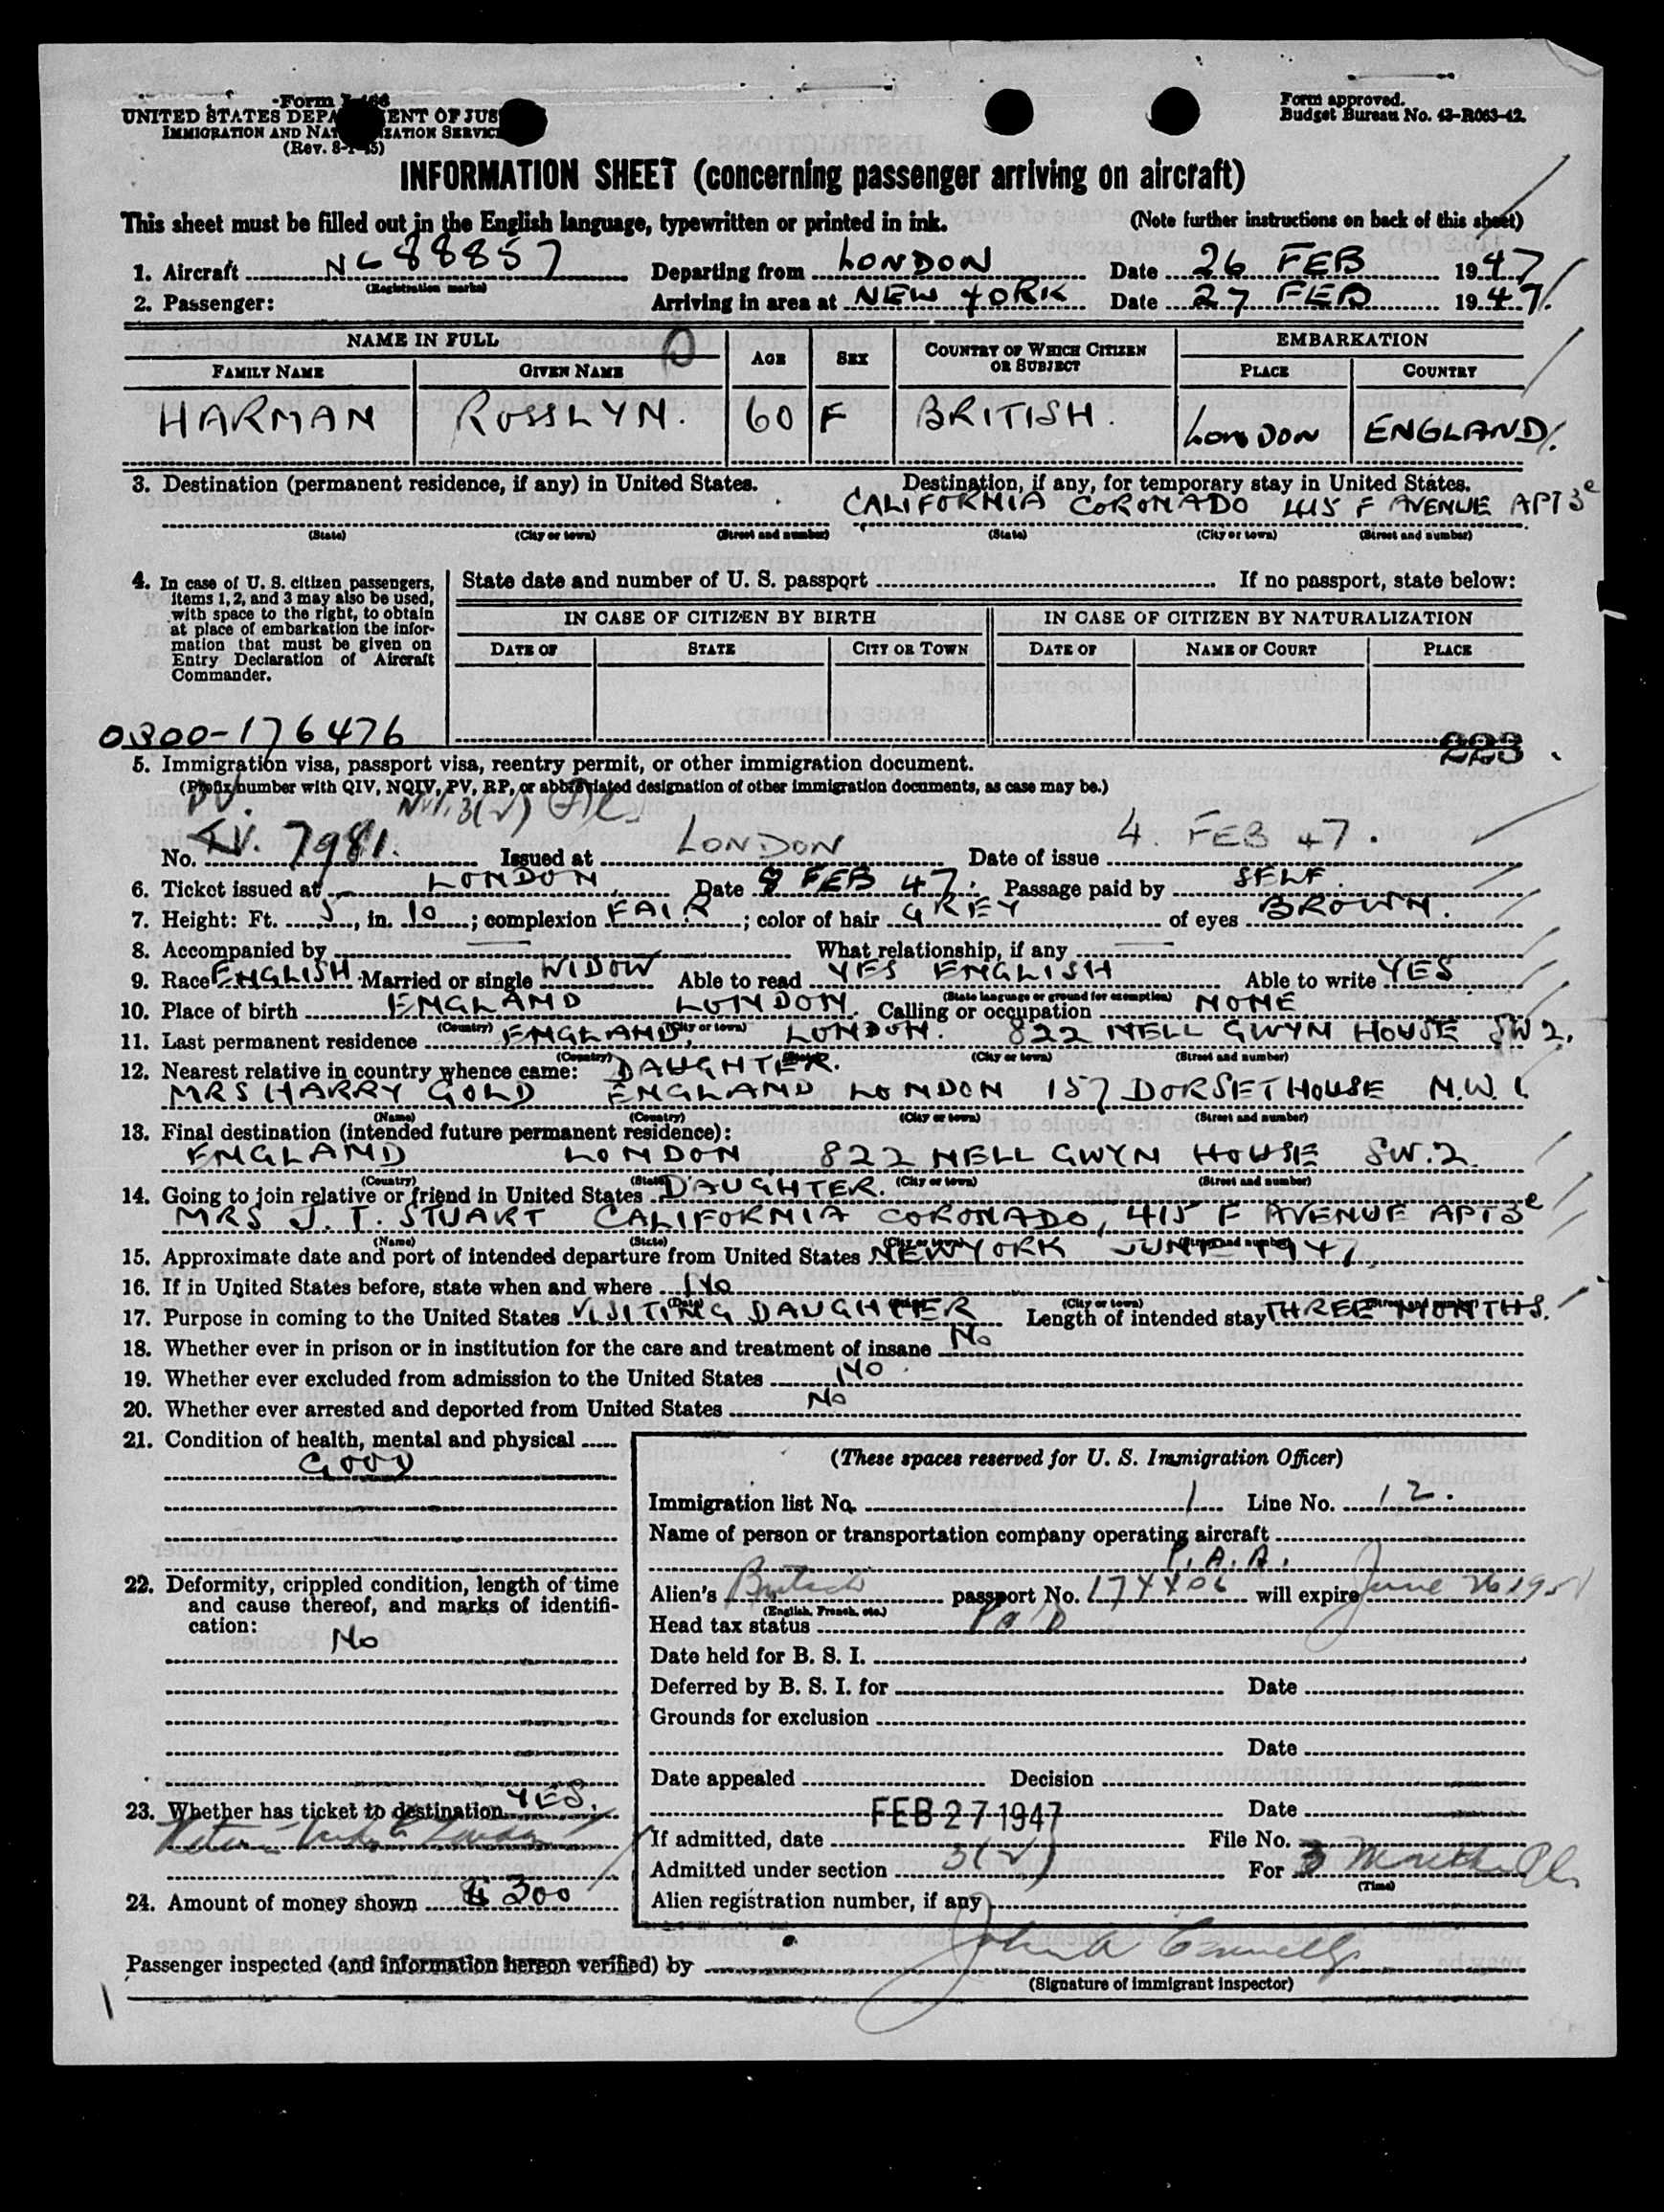 Form I-466
UNITED STATES DEPARTMENT OF JUSTICE
IMMIGRATION AND NATURALIZATION SERVICE
(Rev. 8-1-45)
Form approved.
Budget Bureau No. 43-R063-42.
INFORMATION SHEET (concerning passenger arriving on aircraft)
This sheet must be filled out in the English language, typewritten or printed in ink. (Note further instructions on back of this sheet)
1. Aircraft NC 88857 Departing from LONDON Date 26 FEB 1947
(Registration marks)
2. Passenger: Arriving in area at NEW YORK Date 27 FEB 1947.
NAME IN FULL AGE SEX COUNTRY OF WHICH CITIZEN OR SUBJECT EMBARKATION
FAMILY NAME GIVEN NAME PLACE COUNTRY
HARMAN ROSSLYN. 60 F BRITISH. LONDON ENGLAND.
3. Destination (permanent residence, if any) in United States. Destination, if any, for temporary stay in United States.
CALIFORNIA CORONADO 415 F AVENUE APT 3e
(State) (City or town) (Street and number) (State) (City or town) (Street and number)
4. In case of U. S. citizen passengers, items 1, 2, and 3 may also be used, with space to the right, to obtain at place of embarkation the information that must be given on Entry Declaration of Aircraft Commander.
State date and number of U. S. passport If no passport, state below:
IN CASE OF CITIZEN BY BIRTH IN CASE OF CITIZEN BY NATURALIZATION
DATE OF STATE CITY OR TOWN DATE OF NAME OF COURT PLACE
0300-176476 223
5. Immigration visa, passport visa, reentry permit, or other immigration document.
(Prefix number with QIV, NQIV, PV, RP, or abbreviated designation of other immigration documents, as case may be.)
PV. 3(2)
No. 7981. Issued at LONDON Date of issue 4 FEB 47.
6. Ticket issued at LONDON Date 9 FEB 47. Passage paid by SELF.
7. Height: Ft. 5, in. 10; complexion FAIR; color of hair GREY of eyes BROWN.
8. Accompanied by — What relationship, if any —
9. Race ENGLISH Married or single WIDOW Able to read YES ENGLISH Able to write YES
(State language or ground for exemption)
10. Place of birth ENGLAND LONDON. Calling or occupation NONE
(Country) (City or town)
11. Last permanent residence ENGLAND, LONDON. 822 NELL GWYN HOUSE SW2.
(Country) (State) (City or town) (Street and number)
12. Nearest relative in country whence came: DAUGHTER.
MRS HARRY GOLD ENGLAND LONDON 157 DORSET HOUSE N.W.1.
(Name) (Country) (City or town) (Street and number)
13. Final destination (intended future permanent residence):
ENGLAND LONDON 822 NELL GWYN HOUSE SW.2.
(Country) (State) (City or town) (Street and number)
14. Going to join relative or friend in United States DAUGHTER.
MRS J. T. STUART CALIFORNIA CORONADO, 415 F AVENUE APT 3e
(Name) (State) (City or town) (Street and number)
15. Approximate date and port of intended departure from United States NEW YORK JUNE 1947.
16. If in United States before, state when and where No
(Date) (City or town) (Street and number)
17. Purpose in coming to the United States VISITING DAUGHTER Length of intended stay THREE MONTHS.
18. Whether ever in prison or in institution for the care and treatment of insane No
19. Whether ever excluded from admission to the United States No
20. Whether ever arrested and deported from United States No
21. Condition of health, mental and physical
GOOD
22. Deformity, crippled condition, length of time and cause thereof, and marks of identification:
No
23. Whether has ticket to destination YES.
24. Amount of money shown $ 300
(These spaces reserved for U. S. Immigration Officer)
Immigration list No. 1 Line No. 12.
Name of person or transportation company operating aircraft
P. A. A.
Alien's British passport No. 174406 will expire June 26 1951
(English, French, etc.)
Head tax status Pa'd
Date held for B. S. I.
Deferred by B. S. I. for Date
Grounds for exclusion
Date
Date appealed Decision
Date
If admitted, date FEB 27 1947 File No.
Admitted under section 3(2) For 3 Months
(Time)
Alien registration number, if any
Passenger inspected (and information hereon verified) by
(Signature of immigrant inspector)